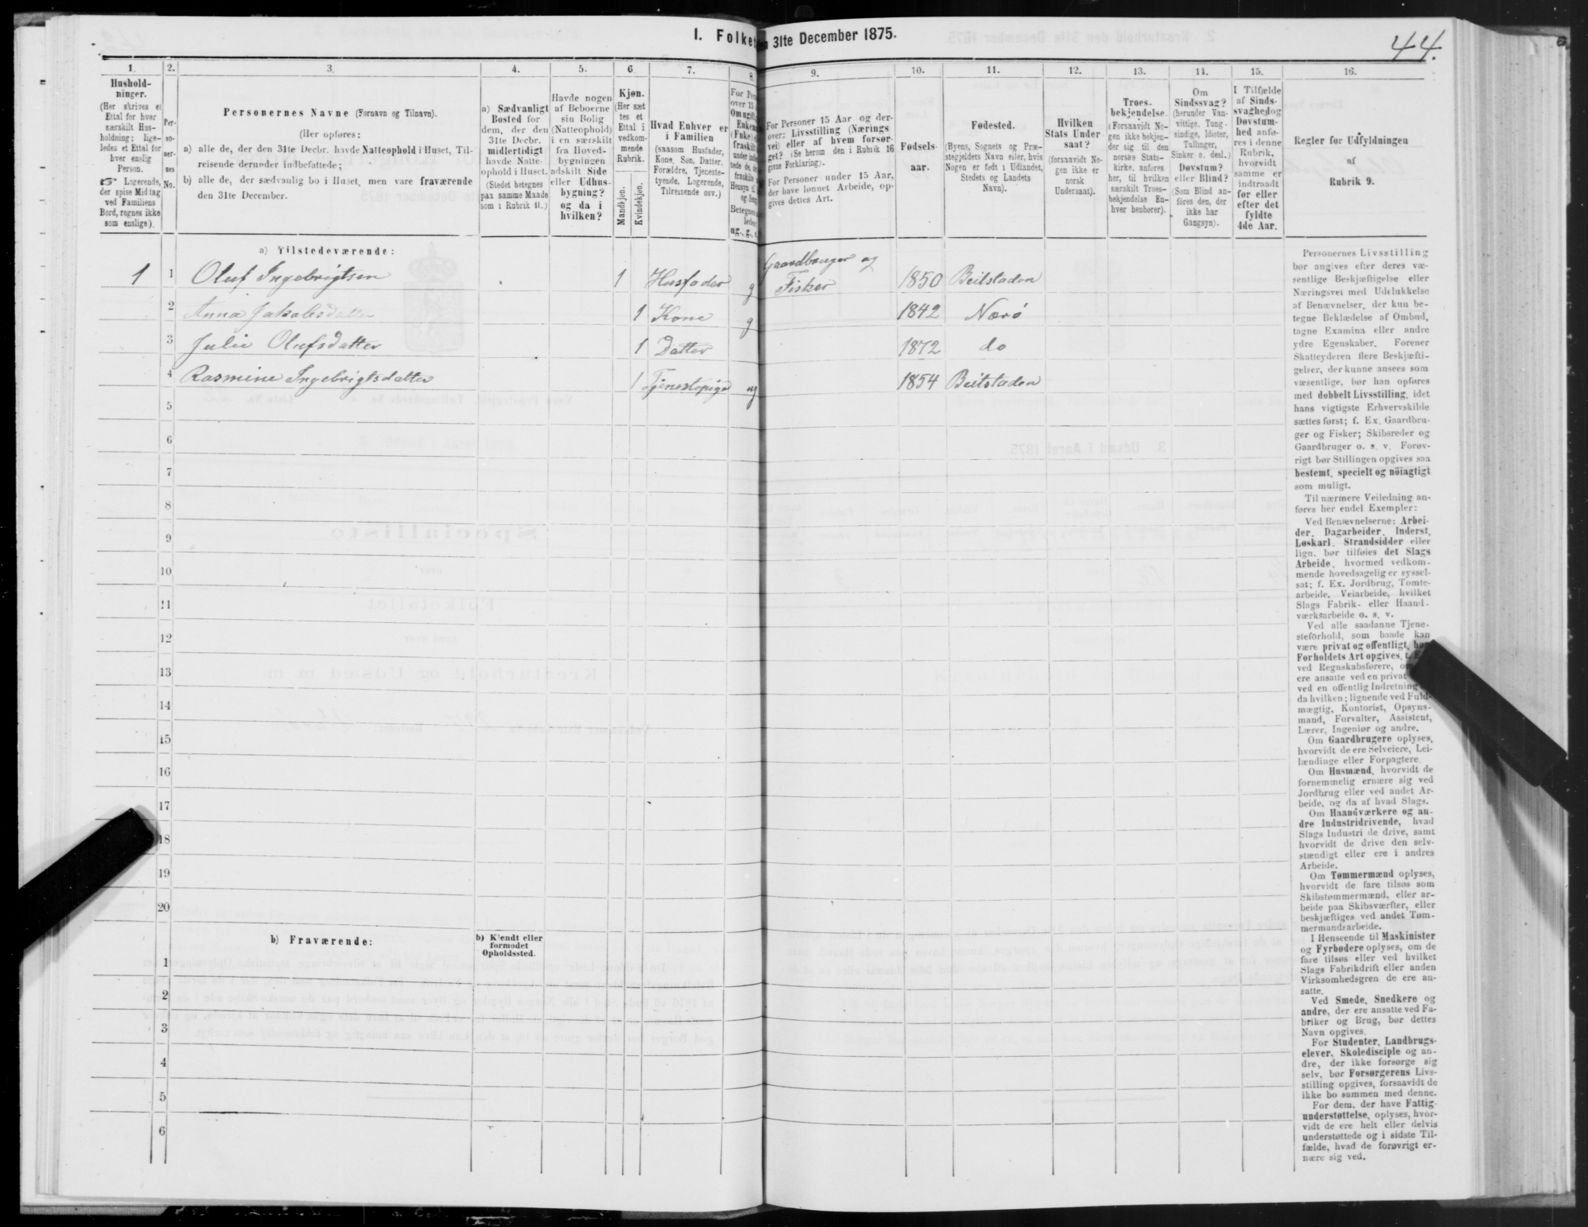 I. Folke
n 31te December 1875.
44.
1.
Hushold-
ninger.
(Her skrives et
Ettal for hver
særskilt Hus-
holdning; lige-
ledes et Ettal for
hver enslig
Person.
☞ Logerende,
der spise Middag
ved Familiens
Bord, regnes ikke
som enslige).
2.
Per-
so-
ner-
nes
No.
3.
Personernes Navne (Fornavn og Tilnavn).
(Her opføres:
a) alle de, der den 31te Decbr. havde Natteophold i Huset, Til-
reisende derunder indbefattede;
b) alle de, der sædvanlig bo i Huset, men vare fraværende
den 31te December.
4.
a) Sædvanligt
Bosted for
dem, der den
31te Decbr.
midlertidigt
havde Natte-
ophold i Huset.
(Stedet betegnes
paa samme Maade
som i Rubrik 11.)
5.
Havde nogen
af Beboerne
sin Bolig
(Natteophold)
i en særskilt
fra Hoved-
bygningen
adskilt Side
eller Udhus-
bygning?
og da i
hvilken?
6
Kjøn.
(Her sæt
tes et
Ettal i
vedkom-
mende
Rubrik.
Mandkjøn.
Kvindekjøn.
7.
Hvad Enhver er
i Familien
(saasom Husfader,
Kone, Søn, Datter,
Forældre, Tjeneste-
tyende, Logerende,
Tilreisende osv.)
8.
For Per
over 15
Om ugift,
Enkem
(Enke)
fraskilt
ug., g.,
9.
For Personer 15 Aar og der-
over: Livsstilling (Nærings
vei) eller af hvem forsør-
get? (Se herom den i Rubrik 16
givne Forklaring).
For Personer under 15 Aar,
der have lønnet Arbeide, op-
gives dettes Art.
10.
Fødsels-
aar.
11.
Fødested.
(Byens, Sognets og Præ-
stegjeldets Navn eller, hvis
Nogen er født i Udlandet,
Stedets og Landets
Navn).
12.
Hvilken
Stats Under
saat?
(forsaavidt No-
gen ikke er
norsk
Undersaat).
13.
Troes.
bekjendelse.
(Forsaavidt No-
gen ikke bekjen-
der sig til den
norske Stats-
kirke, anføres
her, til hvilken
særskilt Troes-
bekjendelse En-
hver henhører).
14.
Om
Sindssvag?
(herunder Van-
vittige, Tung-
sindige, Idioter,
Tullinger,
Sinker o. desl.)
Døvstum?
eller Blind?
(Som Blind an-
føres den, der
ikke har
Gangsyn).
15.
I Tilfælde
af Sinds-
svaghed og
Døvstum-
hed anfø-
res i denne
Rubrik,
hvorvidt
samme er
indtraadt
før eller
efter det
fyldte
4de Aar.
16.
Regler for Udfyldningen
af
Rubrik 9.
a) Tilstedeværende:
1 1 Oluf Ingebrigtsen 1 Husfader g Gaardbruger og Fisker 1850 Beitstaden
2 Anna Jakobsdatter 1 Kone g 1842 Nærø
3 Julie Olufsdatter 1 Datter 1872 do
4 Rasmine Ingebrigtsdatter 1 Tjenestepige ug 1854 Beitstaden
5
6
7
8
9
10
11
12
13
14
15
16
17
18
19
20
b) Fraværende:
b) Kjendt eller
formodet
Opholdssted.
1
2
3
4
5
6
Personernes Livsstilling
bør angives efter deres væ-
sentlige Beskjæftigelse eller
Næringsvei med Udelukkelse
af Benævnelser, der kun be-
tegne Beklædelse af Ombud,
tagne Examina eller andre
ydre Egenskaber. Forener
Skatteyderen flere Beskjæfti-
gelser, der kunne ansees som
væsentlige, bør han opføres
med dobbelt Livsstilling, idet
hans vigtigste Erhvervskilde
sættes først; f. Ex. Gaardbru-
ger og Fisker; Skibsreder og
Gaardbruger o. s. v. Forøv-
rigt bør Stillingen opgives saa
bestemt, specielt og nöiagtigt
som muligt.
Til nærmere Veiledning an-
føres her endel Exempler:
Ved Benævnelserne: Arbei-
der, Dagarbeider, Inderst,
Løskarl, Strandsidder eller
lign. bør tilføies det Slags
Arbeide, hvormed vedkom-
mende hovedsagelig er syssel-
sat; f. Ex. Jordbrug, Tomte-
arbeide, Veiarbeide, hvilket
Slags Fabrik- eller Haand-
værksarbeide o. s. v.
Ved alle saadanne Tjene-
steforhold, som baade kan
være privat og offentligt, bør
Forholdets Art opgives,
ved Regnskabsførere,
ere ansatte ved en privat
ved en offentlig Indretning
da hvilken; lignende ved Fuld-
mægtig, Kontorist, Opsyns-
mand, Forvalter, Assistent,
Lærer, Ingeniør og andre.
Om Gaardbrugere oplyses,
hvorvidt de ere Selveiere, Lei-
lændinge eller Forpagtere.
Om Husmænd, hvorvidt de
fornemmelig ernære sig ved
Jordbrug eller ved andet Ar-
beide, og da af hvad Slags.
Om Haandværkere og an-
dre Industridrivende, hvad
Slags Industri de drive, samt
hvorvidt de drive den selv-
stændigt eller ere i andres
Arbeide.
Om Tømmermænd oplyses,
hvorvidt de fare tilsøs som
Skibstømmermænd, eller ar-
beide paa Skibsværfter, eller
beskjæftiges ved andet Tøm-
mermandsarbeide.
I Henseende til Maskinister
og Fyrbødere oplyses, om de
fare tilsøs eller ved hvilket
Slags Fabrikdrift eller anden
Virksomhedsgren de ere an-
satte.
Ved Smede, Snedkere og
andre, der ere ansatte ved Fa-
briker og Brug, bør dettes
Navn opgives.
For Studenter, Landbrugs-
elever, Skoledisciple og an-
dre, der ikke forsørge sig
selv, bør Forsørgerens Livs-
stilling opgives, forsaavidt de
ikke bo sammen med denne.
For dem, der have Fattig-
understøttelse, oplyses, hvor-
vidt de ere helt eller delvis
understøttede og i sidste Til-
fælde, hvad de forøvrigt er-
nære sig ved.